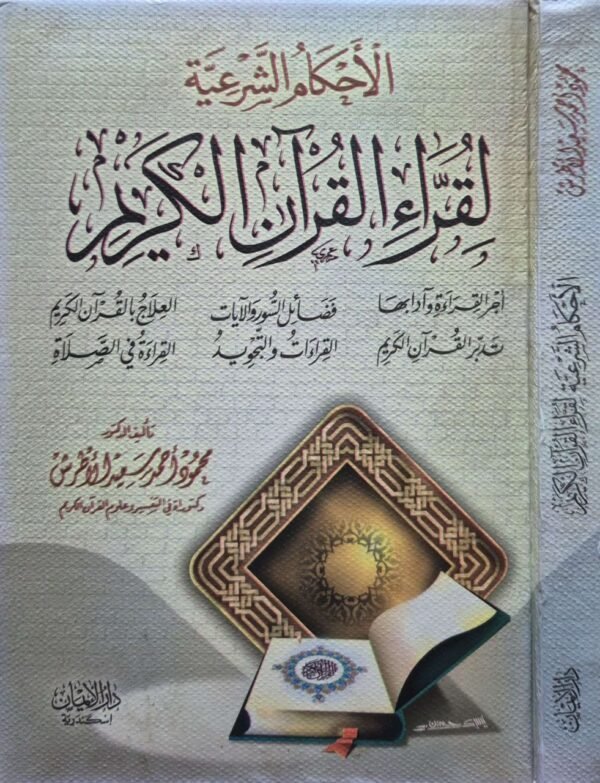 الأحكام الشرعية
لقراء القرآن الكريم
أجر القراءة وآدابها فضائل السور والآيات العلاج بالقرآن الكريم
تدبر القرآن الكريم القراءات والتجويد القراءة في الصلاة
تأليف الدكتور
محمود أحمد سعيد الأطرش
دكتوراة في التفسير وعلوم القرآن الكريم
دار الإيمان
اسكندرية
محمود أحمد سعيد الأطرش
الأحكام الشرعية لقراء القرآن الكريم
دار الإيمان